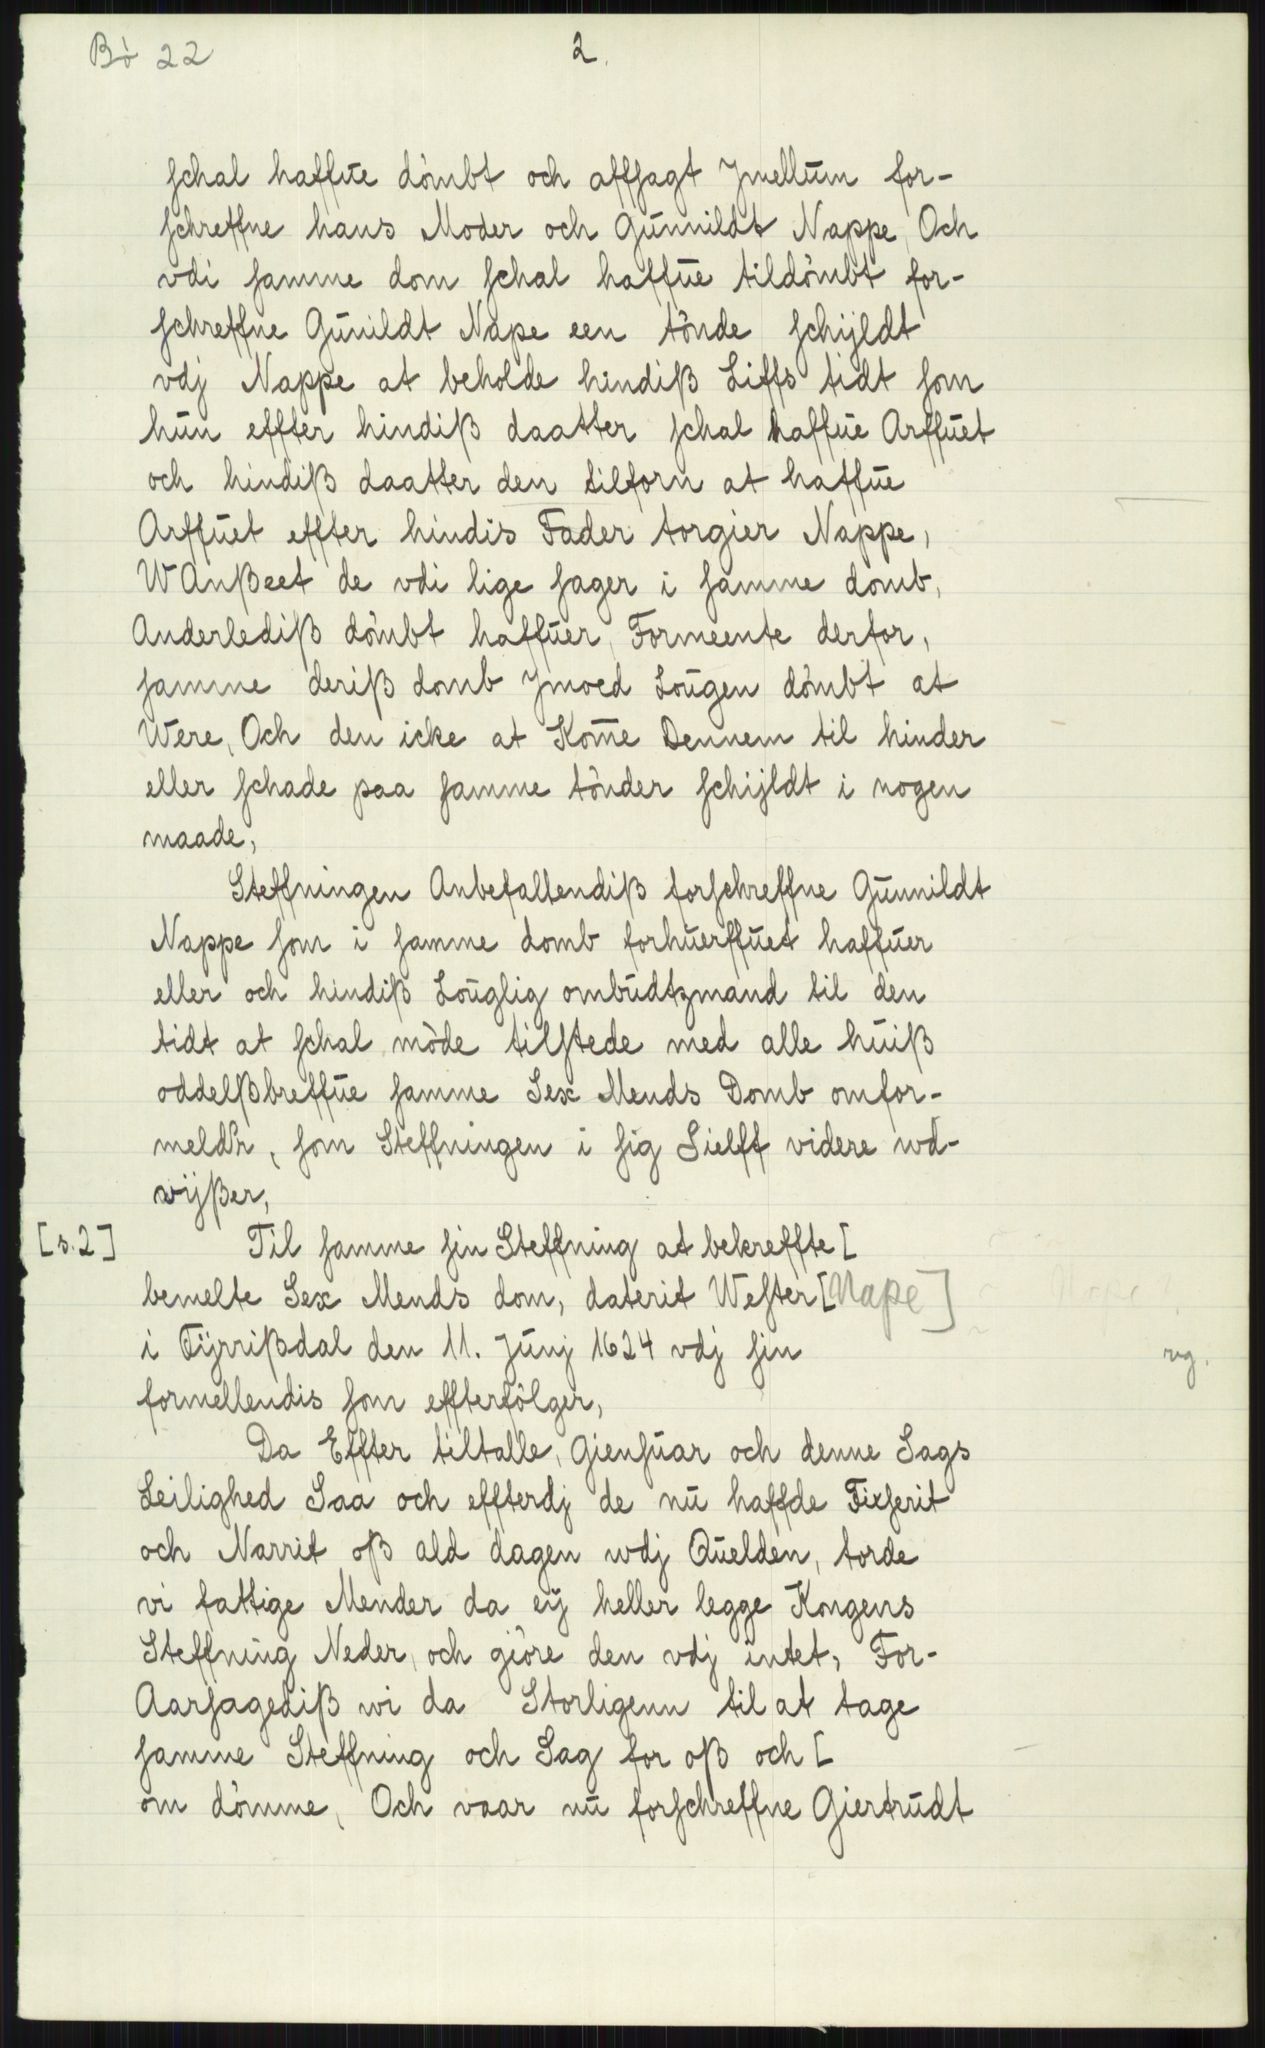 Bò 22
2.
schal haffue dömbt och affsagt Jmellum for-
schreffne hans Moder och Gunnildt Nappe, Och
vdi samme dom schal haffue tildömbt for-
schreffne Gunildt Nape een tönde schijldt
vdj Nappe at beholde hindiß Liffs tidt som
hun effter hindiß daatter schal haffue Arffuet
och hindiß daatter den tilforn at haffue
Arffuet effter hindis Fader torgier Nappe,
WAnßeet de vdi lige sager i samme domb,
Anderlediß dömbt haffuer, Formeente derfor,
samme deriß domb Jmoed Lougen dömbt at
Were, Och den icke at Kom̄e Dennem til hinder
eller schade paa samme tönder schijldt i nogen
maade,
Steffningen Anbefallendiß forschreffne Gunnildt
Nappe som i samme domb forhuerffuet haffuer
eller och hindiß Louglig ombudtzmand til den
tidt at schal möde tilstede med alle huiß
oddelßbreffue samme Sex Mends Domb omfor-
meld'r, som Steffningen i sig Sielff videre wd-
vijßer,
[s.2]
Til samme sin Steffning at bekreffte [
bemelte Sex Mends dom, daterit Wester [Nape]
i Tijrrißdal den 11. Junj 1624 vdj sin
rg.
formellendis som effterfölger,
Da Effter tiltalle, Giensuar och denne Sags
Leilighed Saa och effterdj de nu haffde Fixserit
och Narrit oß ald dagen wdj Quelden, torde
vi fattige Mender da eÿ heller legge Kongens
Steffning Neder, och giöre den vdj intet, For-
Aarsagediß wi da Storligenn til at tage
samme Steffning och Sag for oß och [
om dömme, Och vaar nu forschreffne Giertrudt